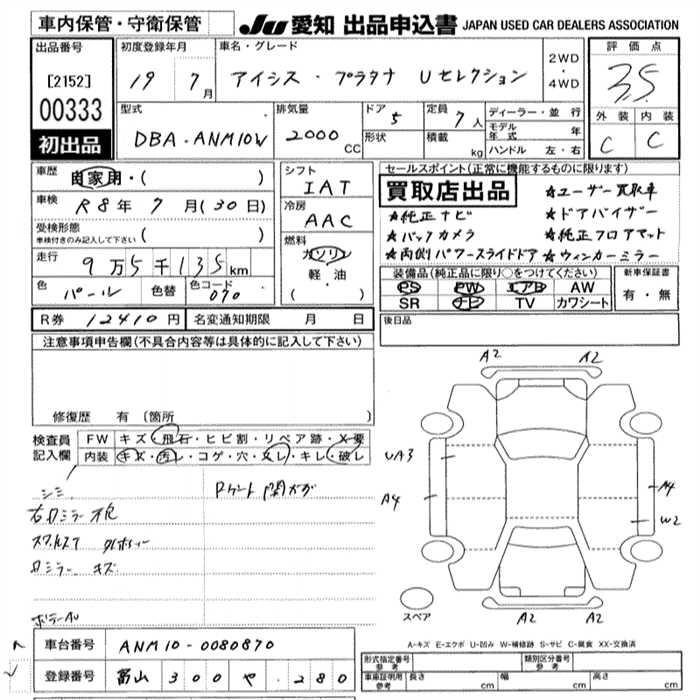 車内保管・守衛保管
JU 愛知 出品申込書 JAPAN USED CAR DEALERS ASSOCIATION
出品番号
[2152]
00333
初出品
初度登録年月
19 7月
車名・グレード
アイシス・プラタナ Uセレクション
2WD
・
4WD
評価点
3.5
外装 内装
C C
型式
DBA-ANM10W
排気量
2000 CC
ドア 5
形状
定員 7人
積載 kg
ディーラー・並行
モデル年式 年
ハンドル 左・右
車歴 自家用・( )
車検 R8年 7月(30日)
受検形態
車検付きのみ記入して下さい ( )
走行 9万5千135km
色 パール 色替 色コード 070
シフト
IAT
冷房
AAC
燃料
ガソリン
軽・油
・( )
セールスポイント(正常に機能するものに限ります)
買取店出品
★ユーザー買取車
★純正ナビ ★ドアバイザー
★バックカメラ ★純正フロアマット
★両側パワースライドドア ★ウィンカーミラー
装備品(純正品に限り○をつけてください)
PS PW エアB AW
SR ナビ TV カワシート
新車保証書
有・無
R券 12410円 名変通知期限 月 日
後日品
注意事項申告欄(不具合内容等は具体的に記入して下さい)
修復歴 有(箇所
検査員
記入欄
FW キズ・飛石・ヒビ割・リペア跡・X要
内装 キズ・汚レ・コゲ・穴・スレ・キレ・破レ
シミ
キズ
A2 A2
UA3
A4
A4
W2
A2 A2
スペア
A-キズ E-エクボ U-凹み W-補修跡 S-サビ C-腐食 XX-交換済
車台番号 ANM10-0080870
登録番号 富山 300 や・280
形式指定番号
参考
類別区分番号
参考
車庫証明用
参考
長さ cm 幅 cm 高さ cm